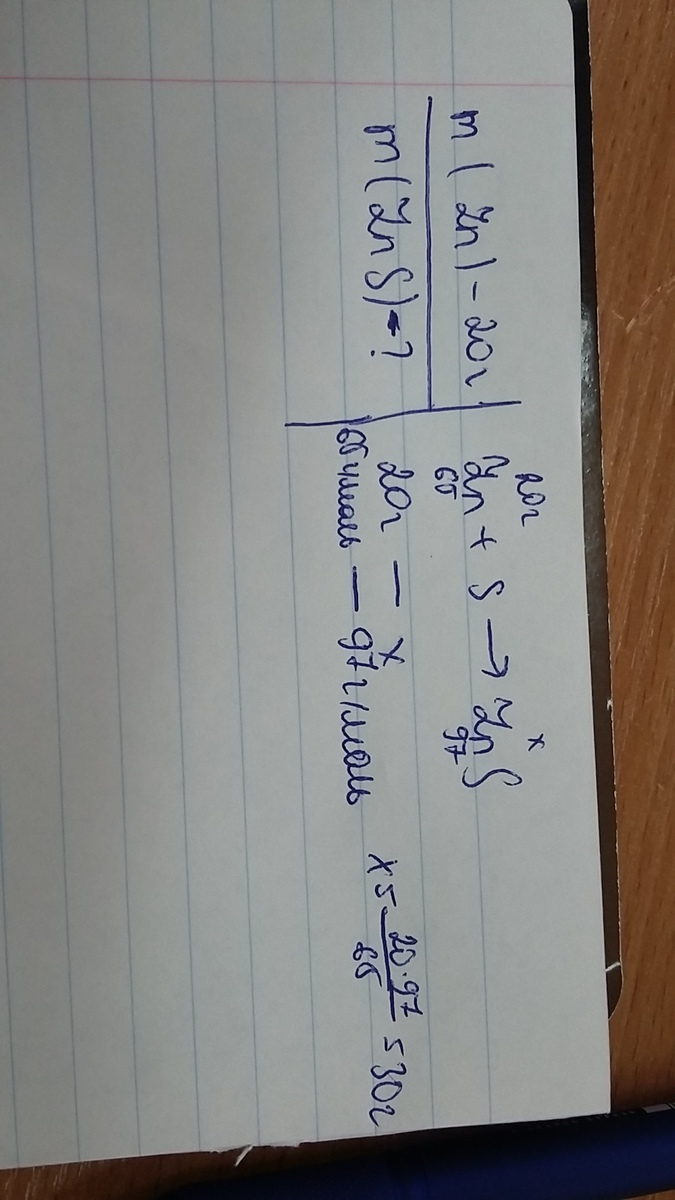 m(Zn) - 20г
m(ZnS) - ?
20г x
Zn + S → ZnS
65 97
20г — x
65г/моль — 97г/моль
x = 20·97 / 65 = 30г